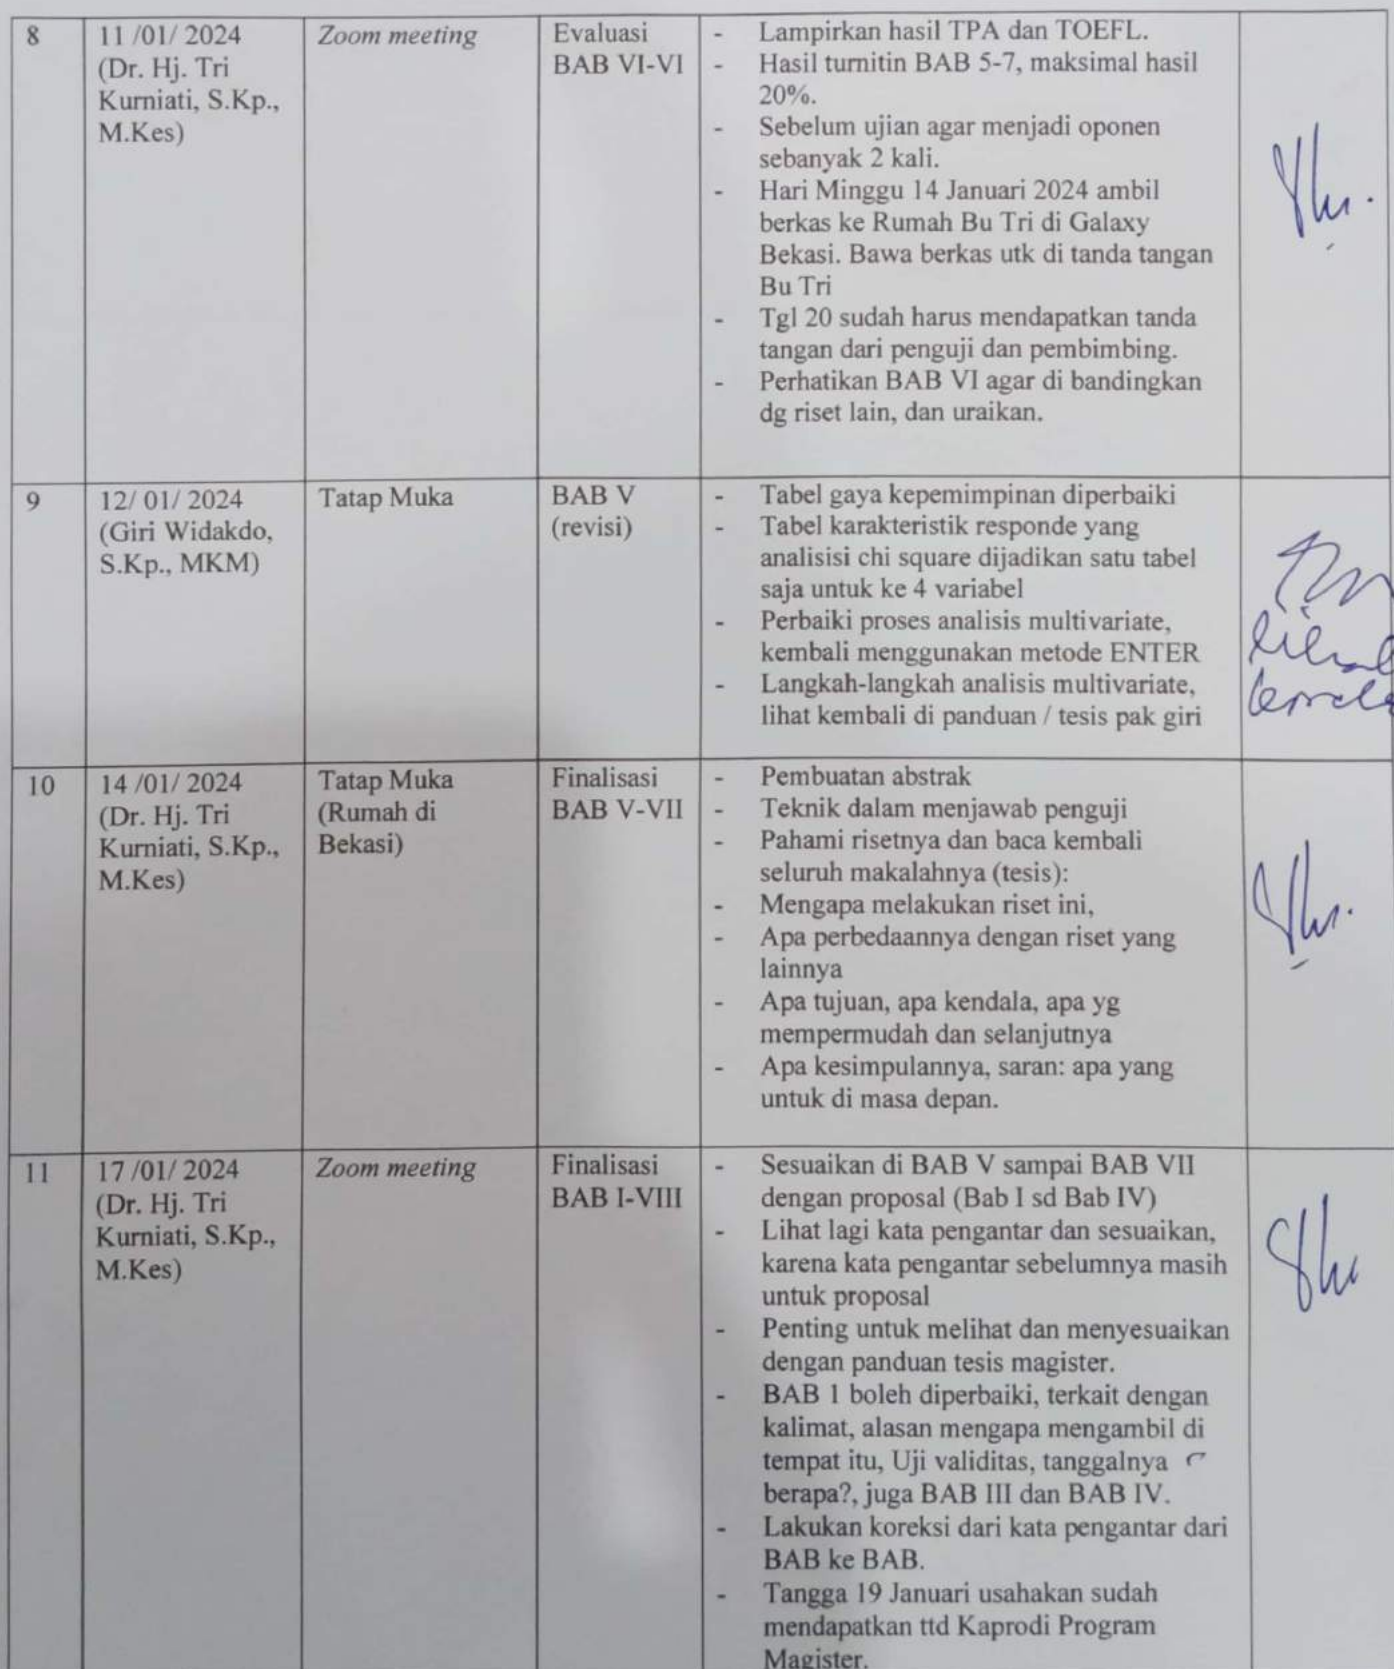 8
11 /01/ 2024
(Dr. Hj. Tri
Kurniati, S.Kp.,
M.Kes)
Zoom meeting
Evaluasi
BAB VI-VI
- Lampirkan hasil TPA dan TOEFL.
- Hasil turnitin BAB 5-7, maksimal hasil
20%.
- Sebelum ujian agar menjadi oponen
sebanyak 2 kali.
- Hari Minggu 14 Januari 2024 ambil
berkas ke Rumah Bu Tri di Galaxy
Bekasi. Bawa berkas utk di tanda tangan
Bu Tri
- Tgl 20 sudah harus mendapatkan tanda
tangan dari penguji dan pembimbing.
- Perhatikan BAB VI agar di bandingkan
dg riset lain, dan uraikan.
9
12/ 01/ 2024
(Giri Widakdo,
S.Kp., MKM)
Tatap Muka
BAB V
(revisi)
- Tabel gaya kepemimpinan diperbaiki
- Tabel karakteristik responde yang
analisisi chi square dijadikan satu tabel
saja untuk ke 4 variabel
- Perbaiki proses analisis multivariate,
kembali menggunakan metode ENTER
- Langkah-langkah analisis multivariate,
lihat kembali di panduan / tesis pak giri
10
14 /01/ 2024
(Dr. Hj. Tri
Kurniati, S.Kp.,
M.Kes)
Tatap Muka
(Rumah di
Bekasi)
Finalisasi
BAB V-VII
- Pembuatan abstrak
- Teknik dalam menjawab penguji
- Pahami risetnya dan baca kembali
seluruh makalahnya (tesis):
- Mengapa melakukan riset ini,
- Apa perbedaannya dengan riset yang
lainnya
- Apa tujuan, apa kendala, apa yg
mempermudah dan selanjutnya
- Apa kesimpulannya, saran: apa yang
untuk di masa depan.
11
17 /01/ 2024
(Dr. Hj. Tri
Kurniati, S.Kp.,
M.Kes)
Zoom meeting
Finalisasi
BAB I-VIII
- Sesuaikan di BAB V sampai BAB VII
dengan proposal (Bab I sd Bab IV)
- Lihat lagi kata pengantar dan sesuaikan,
karena kata pengantar sebelumnya masih
untuk proposal
- Penting untuk melihat dan menyesuaikan
dengan panduan tesis magister.
- BAB 1 boleh diperbaiki, terkait dengan
kalimat, alasan mengapa mengambil di
tempat itu, Uji validitas, tanggalnya
berapa?, juga BAB III dan BAB IV.
- Lakukan koreksi dari kata pengantar dari
BAB ke BAB.
- Tangga 19 Januari usahakan sudah
mendapatkan ttd Kaprodi Program
Magister.